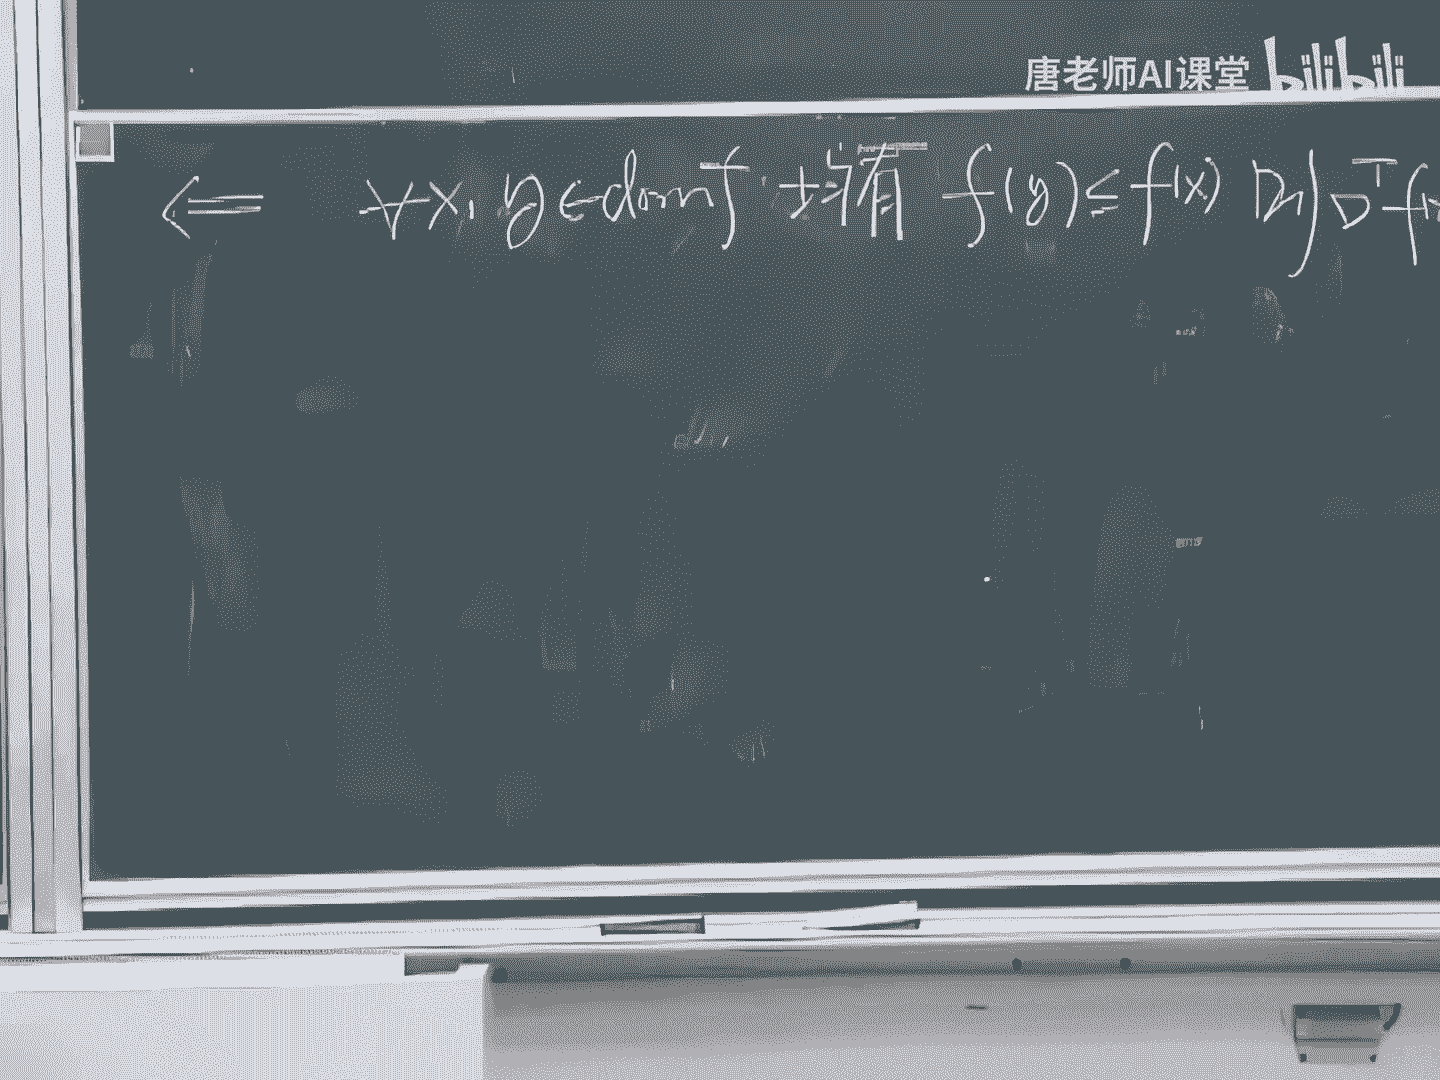 唐老师AI课堂 bilibili
⇐ ∀x, y ∈ dom f 均有 f(y) ≤ f(x) 则 ∇ᵀf(x